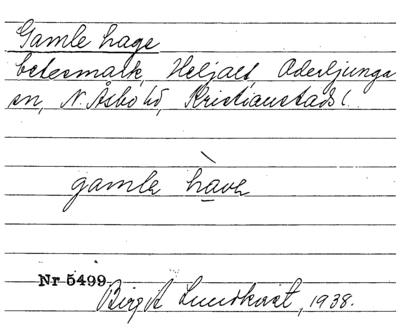 Gamle hage
betesmark, Heljalt, Oderljunga
sn, N. Åsbo hd, Kristianstads l.
gamle have
Nr 5499
Birgit Lundkvist, 1938.